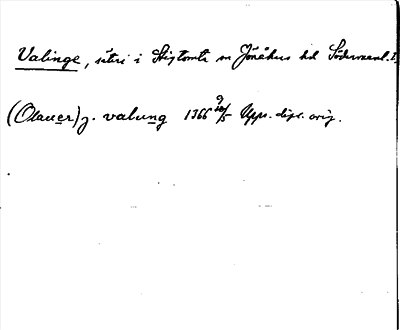 Valinge, säteri i Stigtomta sn Jönåkers hd Södermanl. l.
(Olauer) j. valung 1366 9/5 Upps. dipl. orig.